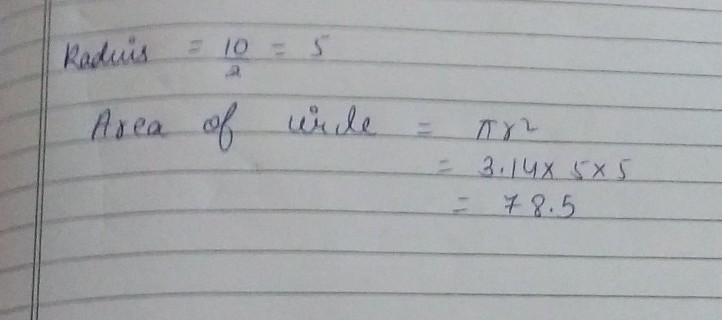 Raduis = 10/2 = 5
Area of circle = πr²
= 3.14 × 5 × 5
= 78.5